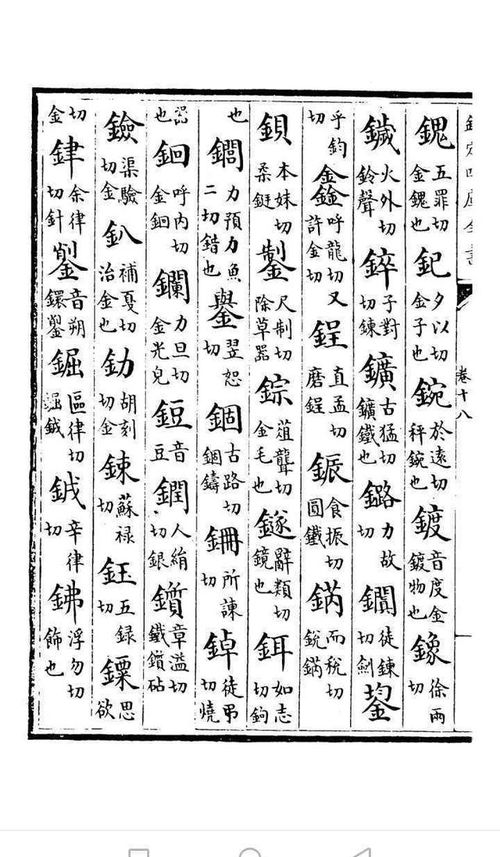 欽定四庫全書
卷十八
五罪切金也釲夕以切金子也鋺於遠切秤鋺也鍍音度金鍍物也鐌徐兩切
鐬火外切鈴聲錊子對切鍊鑛古猛切鑛鐵也鏴力故切徒鍊切
乎鈞切鑫呼龍切又許金切鋥直孟切磨鋥鋠食振切圓鐵而稅切銳
鋇本妹切柔鋌尺制切除草器錝聾切金毛也鐩辭類切鏡也鉺如志切鉤
也力預力魚二切錯也翌恕切錮古路切錮鑄所諫切鋽徒弔切燒
器也呼內切金鑭力旦切金光皃鋀音豆人絹切銀鑕章溢切鐵鑕砧
鐱渠驗切金釟補戞切治金也釛胡刻切金鋉蘇祿切鈺五録切思欲
切金銉余律切針音朔區律切銊辛律切鉘浮勿切飾也